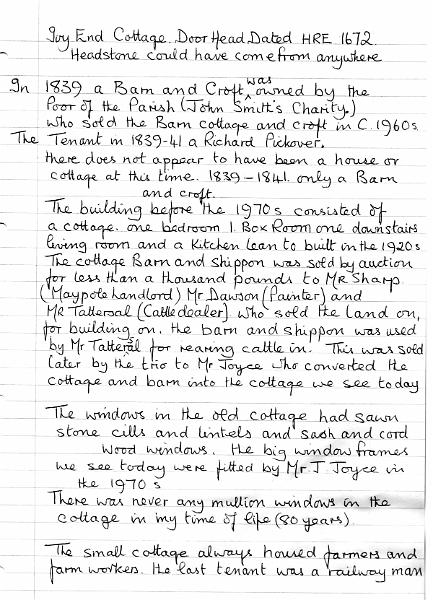 Ivy End Cottage. Door Head Dated HRE 1672.
Headstone could have come from anywhere
In 1839 a Barn and Croft, was owned by the
Poor of the Parish (John Smith's Charity.)
who sold the Barn cottage and croft in C. 1960s
The Tenant in 1839-41 a Richard Pickover.
there does not appear to have been a house or
cottage at this time. 1839-1841. only a Barn
and croft.
The building before the 1970s consisted of
a cottage. one bedroom 1 Box Room one downstairs
living room and a Kitchen lean to built in the 1920s
The cottage Barn and Shippon was sold by auction
for less than a thousand pounds to Mr Sharp
(Maypole landlord) Mr Dawson (Painter) and
MR Tattersal (Cattle dealer) who sold the land on,
for building on. the barn and shippon was used
by Mr Tattersal for rearing cattle in. This was sold
later by the trio to Mr Joyce who converted the
cottage and barn into the cottage we see today
The windows in the old cottage had sawn
stone cills and lintels and sash and cord
wood windows. the big window frames
we see today were fitted by Mr J Joyce in
the 1970s
There was never any mullion windows in the
cottage in my time of life (80 years)
The small cottage always housed farmers and
farm workes. the last tenant was a railway man